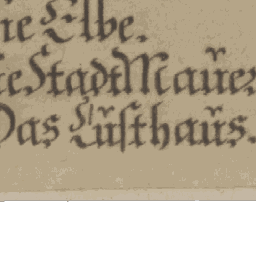 ie Elbe.
ie Stadt Mauer
Das Lusthaus.